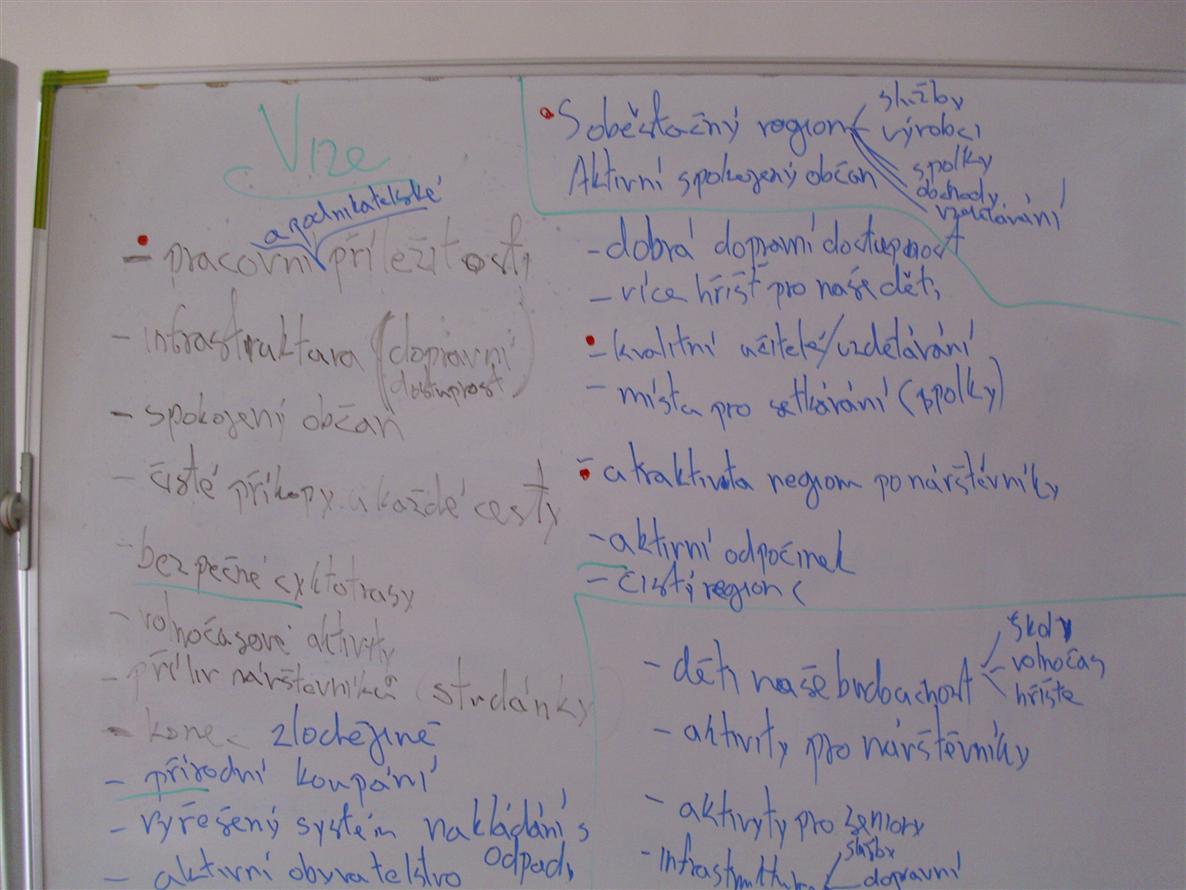 Vize
a podnikatelské
- pracovní příležitosti
- infrastruktura (dopravní
dostupnost)
- spokojený občan
- čisté příkopy u každé cesty
- bezpečné cyklotrasy
- volnočasové aktivity
- příliv návštěvníků (studánky
- konec zlodějině
- přírodní koupání
- vyřešený systém nakládání s
odpady
- aktivní obyvatelstvo
Soběstačný region
služby
výrobci
spolky
obchody
vzdělávání
Aktivní spokojený občan
- dobrá dopravní dostupnost
- více hřišť pro naše děti
- kvalitní učitelé/vzdělávání
- místa pro setkávání (spolky)
- atraktivita region po návštěvníky
- aktivní odpočinek
- čistý region
- děti naše budoucnost
školy
volnočas
hřiště
- aktivity pro návštěvníky
- aktivyty pro seniory
- infrastruktura
služby
dopravní